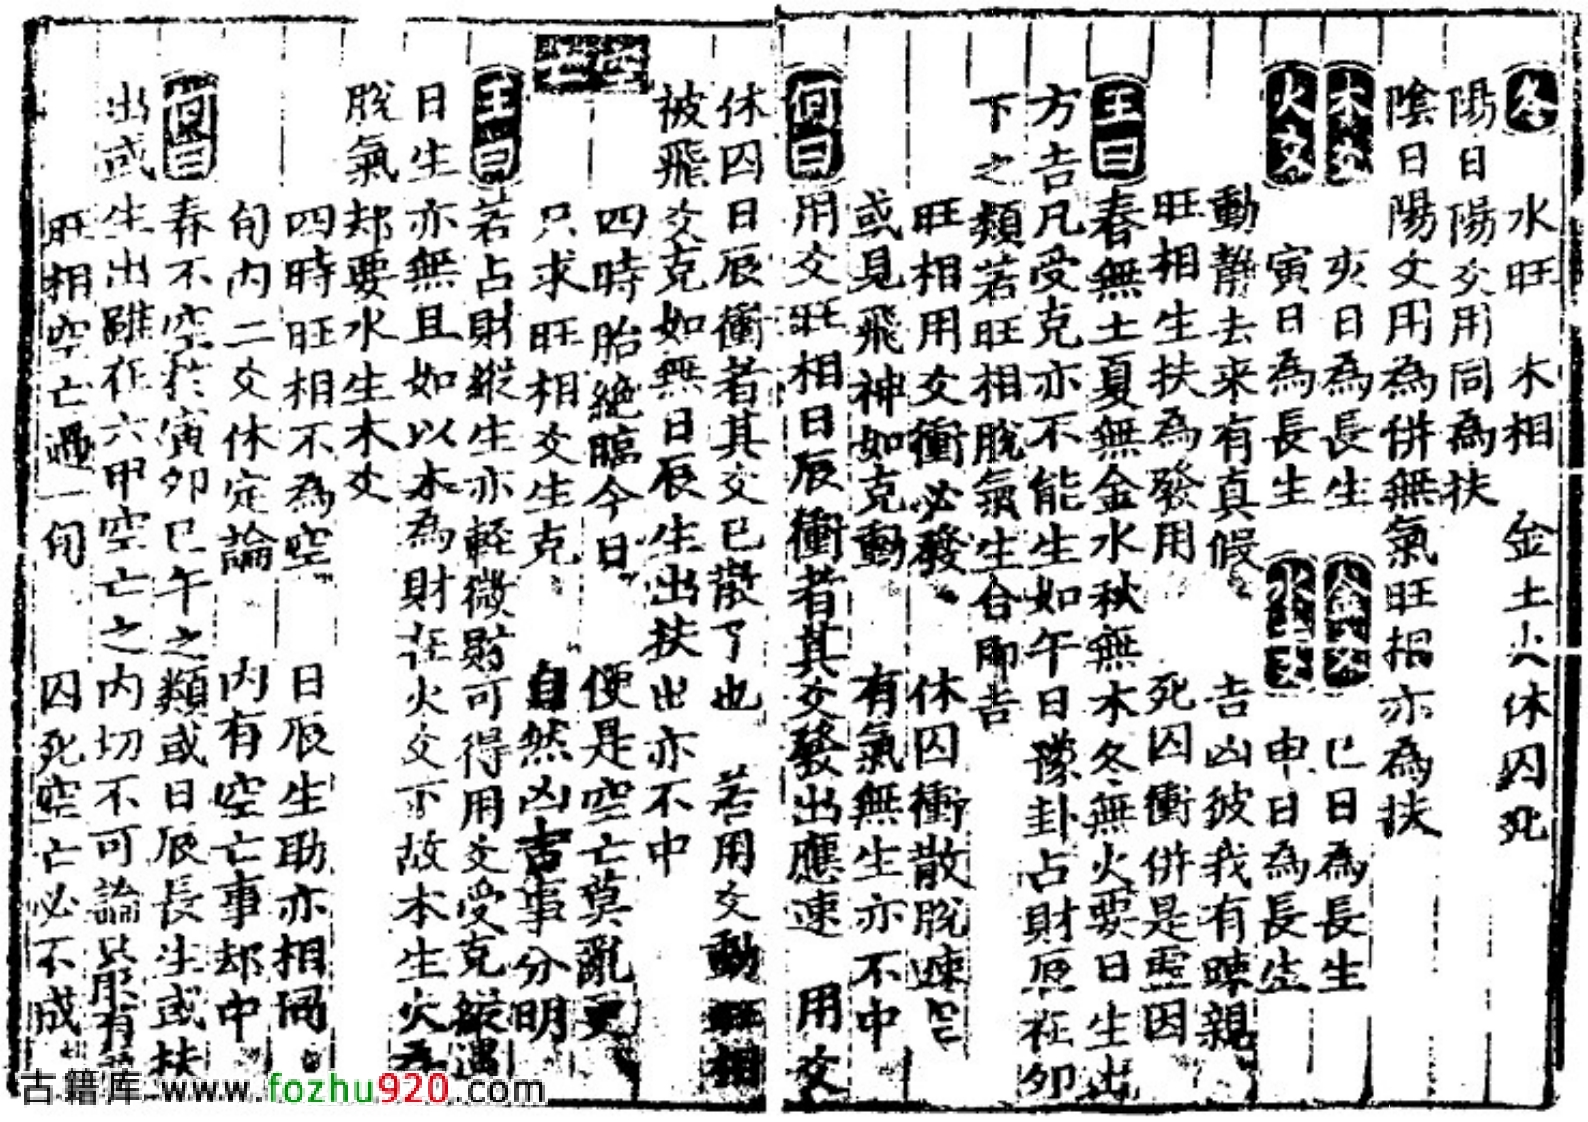 冬 水旺 木相 金土火休囚死
陽日陽爻用同為扶
陰日陽爻用為併無氣旺相亦為扶
木爻 亥日為長生 金爻 巳日為長生
火爻 寅日為長生 水土爻 申日為長生
動靜去来有真假 吉凶彼我有疎親
旺相生扶為發用 死囚衝併是虛因
王曰 春無土夏無金水秋無木冬無火要日生出
方吉凡受克亦不能生如午日豫卦占財爻在卯
下之類若旺相脫氣生合即吉
旺相用爻衝必發 休囚衝散脫速空
或見飛神如克動 有氣無生亦不中
何曰 用爻旺相日辰衝者其爻發出應速 用爻
休囚日辰衝者其爻已散了也 若用爻動旺相
被飛爻克如無日辰生出扶出亦不中
空亡
四時胎絕臨今日 便是空亡莫亂更
只求旺相爻生克 自然凶吉事分明
王曰 若占財縱生亦輕微財可得用爻受克嚴遇
日生亦無且如以木為財在火爻下故本生火為
脫氣却要水生木爻
四時旺相不為空 日辰生助亦相同
旬内二爻休定論 内有空亡事却中
何曰 春不空於寅卯巳午之類或日辰長生或扶
出或生出雖在六甲空亡之内切不可論只服有
旺相空亡過一旬 囚死空亡必不成
古籍库 www.fozhu920.com